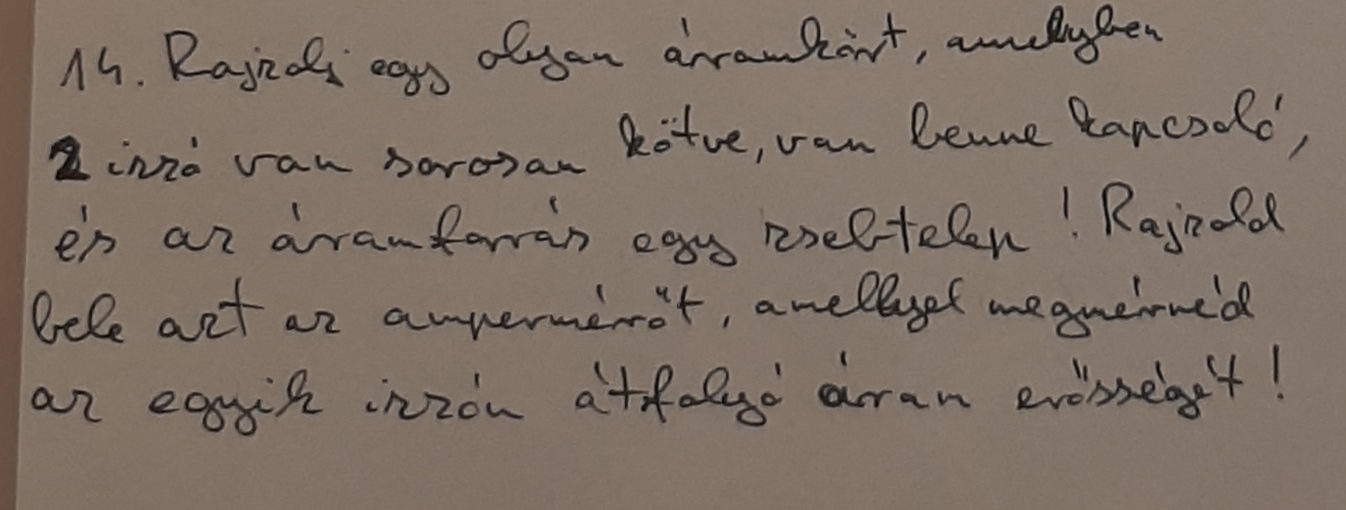 14. Rajzolj egy olyan áramkört, amelyben
2 izzó van sorosan kötve, van benne kapcsoló,
és az áramforrás egy zsebtelep! Rajzold
bele azt az ampermérőt, amellyel megmérnéd
az egyik izzón átfolyó áram erősségét!